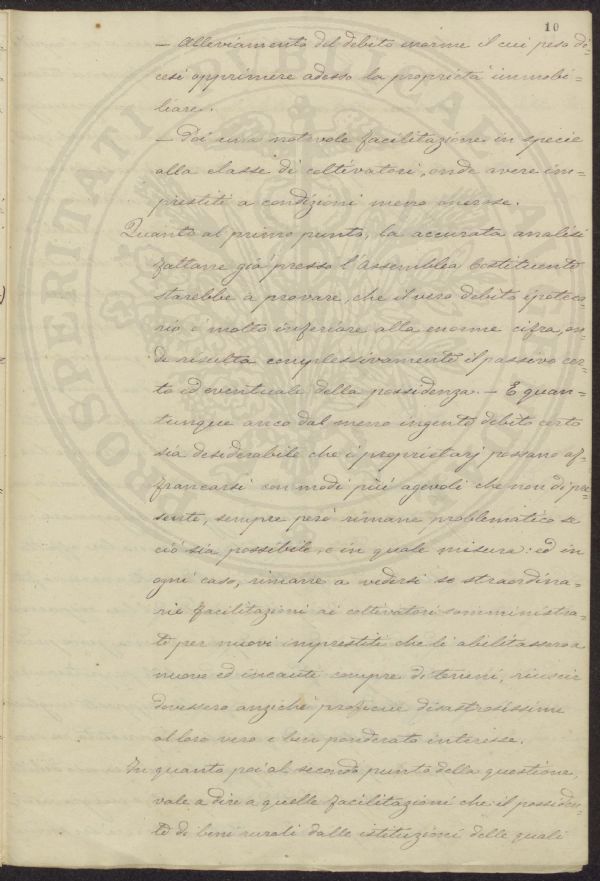 10
— Alleviamento del debito enorme il cui peso di-
cesi opprimere adesso la proprietà immobi-
liare.
— Poi una notevole facilitazione in specie
alla classe di coltivatori, onde avere im-
prestiti a condizioni meno onerose.
Quanto al primo punto, la accurata analisi
fattane già presso l'Assemblea Costituente
starebbe a provare, che il vero debito ipoteca-
rio è molto inferiore alla enorme cifra, on-
de risulta complessivamente il passivo cer-
to ed eventuale della possidenza. — E quan-
tunque anco dal meno ingente debito certo
sia desiderabile che i proprietarj possano af-
francarsi con modi più agevoli che non di pre-
sente, sempre però rimane problematico se
ciò sia possibile, e in quale misura: ed in
ogni caso, rimarre a vedersi se straordina-
rie facilitazioni ai coltivatori somministra-
te per nuovi imprestiti che li abilitassero a
nuove ed incaute compre di terreni, riuscir
dovessero anziché proficui disastrosissime
al loro vero e ben ponderato interesse.
In quanto poi al secondo punto della questione,
vale a dire a quelle facilitazioni che il possiden-
te di beni rurali dalle istituzioni delle quali
PROSPERITATI PUBLICAE